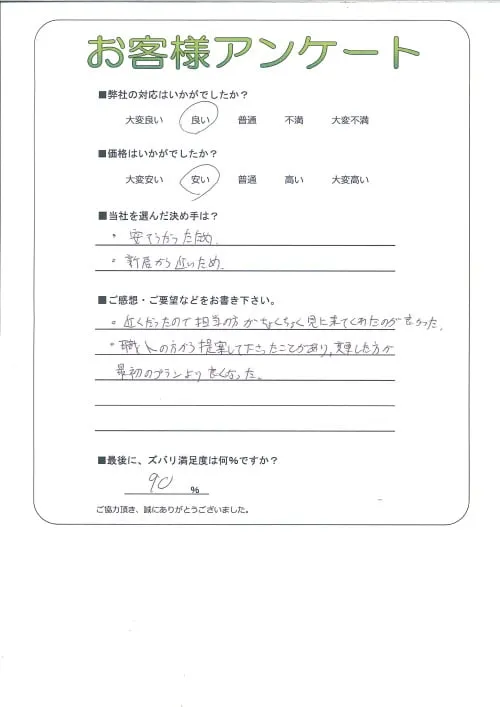 お客様アンケート
■弊社の対応はいかがでしたか?
大変良い 良い 普通 不満 大変不満
■価格はいかがでしたか?
大変安い 安い 普通 高い 大変高い
■当社を選んだ決め手は?
・安そうだったため.
・新居から近いため.
■ご感想・ご要望などをお書き下さい。
・近くだったので担当の方がちょくちょく見に来てくれたのが良かった.
・職人の方から提案して下さったことがあり,変更した方が
最初のプランより良くなった。
■最後に、ズバリ満足度は何%ですか?
90 %
ご協力頂き、誠にありがとうございました。